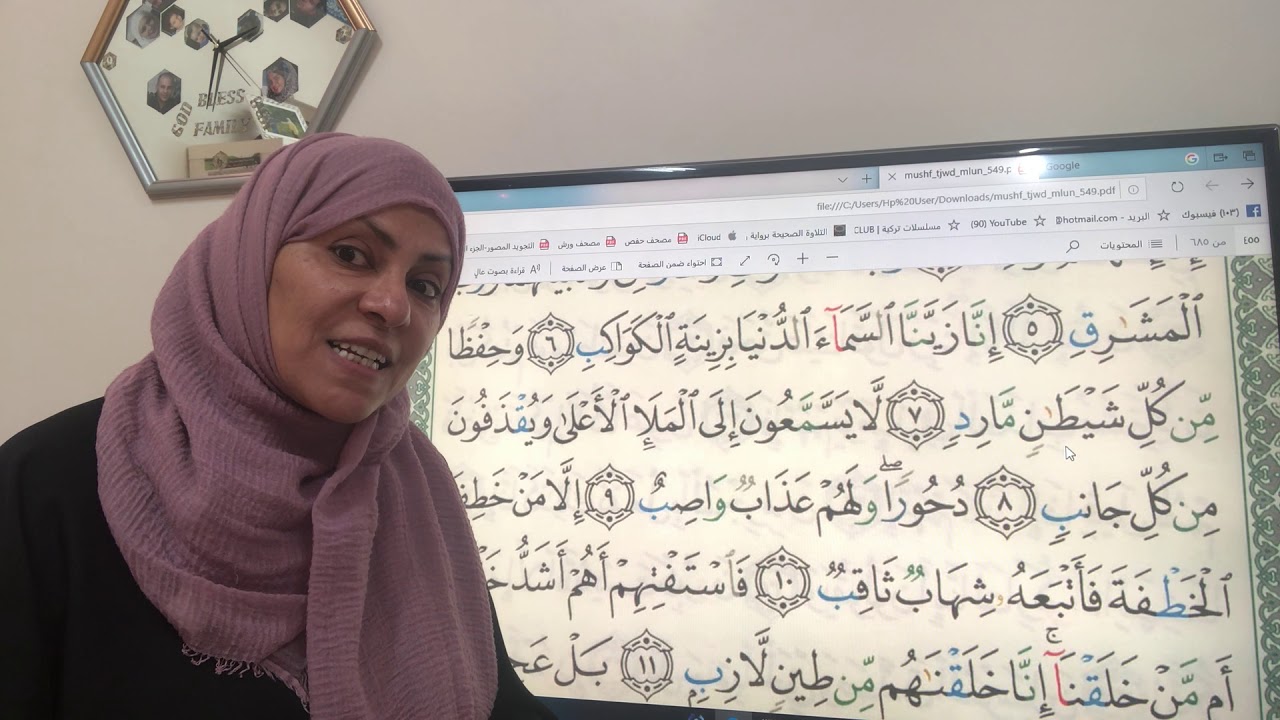 GOD BLESS
FAMILY
mushf_tjwd_mlun_549.p
Google
file:///C:/Users/Hp%20User/Downloads/mushf_tjwd_mlun_549.pdf
(١٠٣) فيسبوك
البريد - @hotmail.com
(90) YouTube
مسلسلات تركية | CLUB
التلاوة الصحيحة برواية
iCloud
مصحف حفص
مصحف ورش
التجويد المصور-الجزء
٤٥٥ من ٦٨٥
المحتويات
احتواء ضمن الصفحة
عرض الصفحة
قراءة بصوت عالٍ
ٱلۡمَشَٰرِقِ ٥ إِنَّا زَيَّنَّا ٱلسَّمَآءَ ٱلدُّنۡيَا بِزِينَةٍ ٱلۡكَوَاكِبِ ٦ وَحِفۡظٗا
مِّن كُلِّ شَيۡطَٰنٖ مَّارِدٖ ٧ لَّا يَسَّمَّعُونَ إِلَى ٱلۡمَلَإِ ٱلۡأَعۡلَىٰ وَيُقۡذَفُونَ
مِن كُلِّ جَانِبٖ ٨ دُحُورٗاۖ وَلَهُمۡ عَذَابٞ وَاصِبٌ ٩ إِلَّا مَنۡ خَطِفَ
ٱلۡخَطۡفَةَ فَأَتۡبَعَهُۥ شِهَابٞ ثَاقِبٞ ١٠ فَٱسۡتَفۡتِهِمۡ أَهُمۡ أَشَدُّ
أَم مَّنۡ خَلَقۡنَآۚ إِنَّا خَلَقۡنَٰهُم مِّن طِينٖ لَّازِبِۭ ١١ بَلۡ